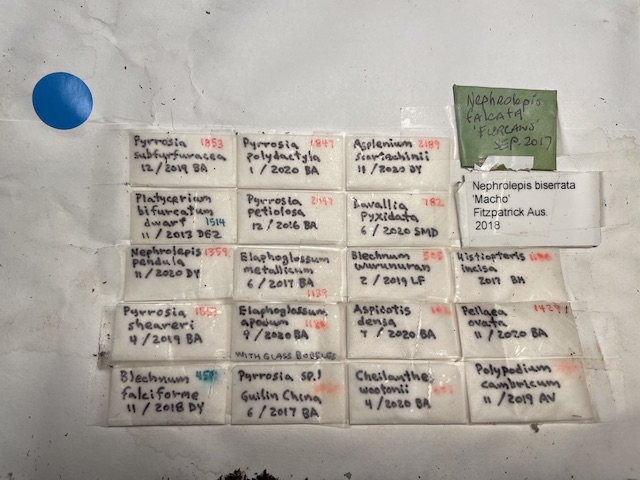 Nephrolepis
falcata
'FURCANS'
SEP. 2017
Pyrrosia 1853
subfurfuracea
12/2019 BA
Pyrrosia
polydactyla
1/2020 BA
Asplenium 2189
11/2020 DY
Nephrolepis biserrata
'Macho'
Fitzpatrick Aus.
2018
Platycerium
bifurcatum
dwarf 1514
11/2013 DEZ
Pyrrosia
petiolosa
12/2016 BA
Davallia 782
Pyxidata
6/2020 SMD
Nephrolepis 1359
pendula
11/2020 DY
Elaphoglossum
metallicum
6/2017 BA
1139
Blechnum 505
wurunuran
2/2019 LF
Histiopteris
incisa
2017 BH
Pyrrosia
sheareri
4/2019 BA
Elaphoglossum
apodum
9/2020 BA
WITH GLASS BOBBLES
Aspidotis
densa
7/2020 BA
Pellaea 1429
ovata
11/2020 BA
Blechnum
falciforme
11/2018 DY
Pyrrosia SP.1
Guilin China
6/2017 BA
Cheilanthes
wootonii
4/2020 BA
Polypodium
cambricum
11/2019 AV